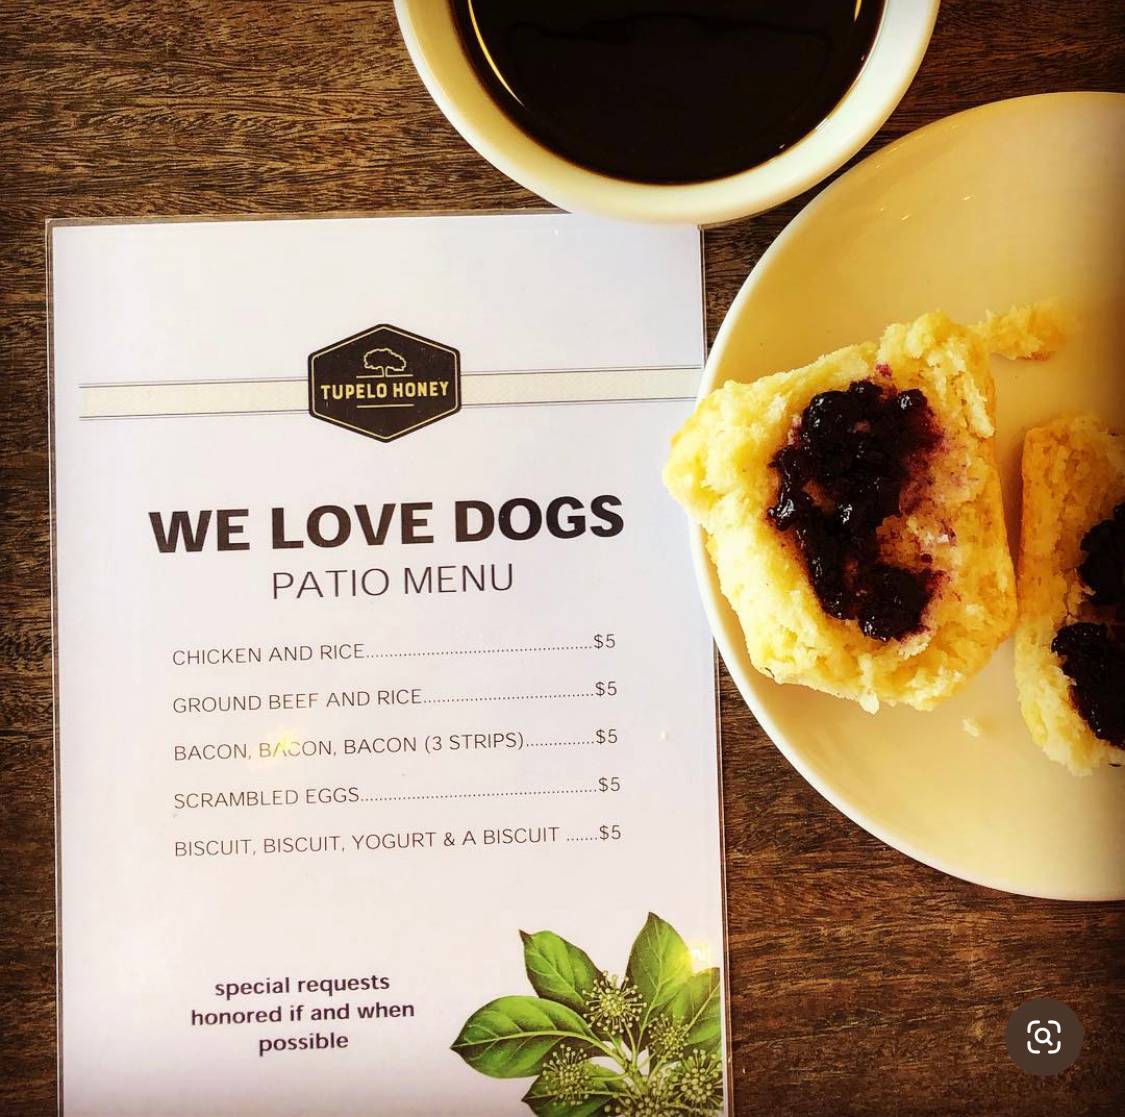 TUPELO HONEY
WE LOVE DOGS
PATIO MENU
CHICKEN AND RICE................................................$5
GROUND BEEF AND RICE....................................$5
BACON, BACON, BACON (3 STRIPS)..............$5
SCRAMBLED EGGS..................................................$5
BISCUIT, BISCUIT, YOGURT & A BISCUIT .......$5
special requests
honored if and when
possible